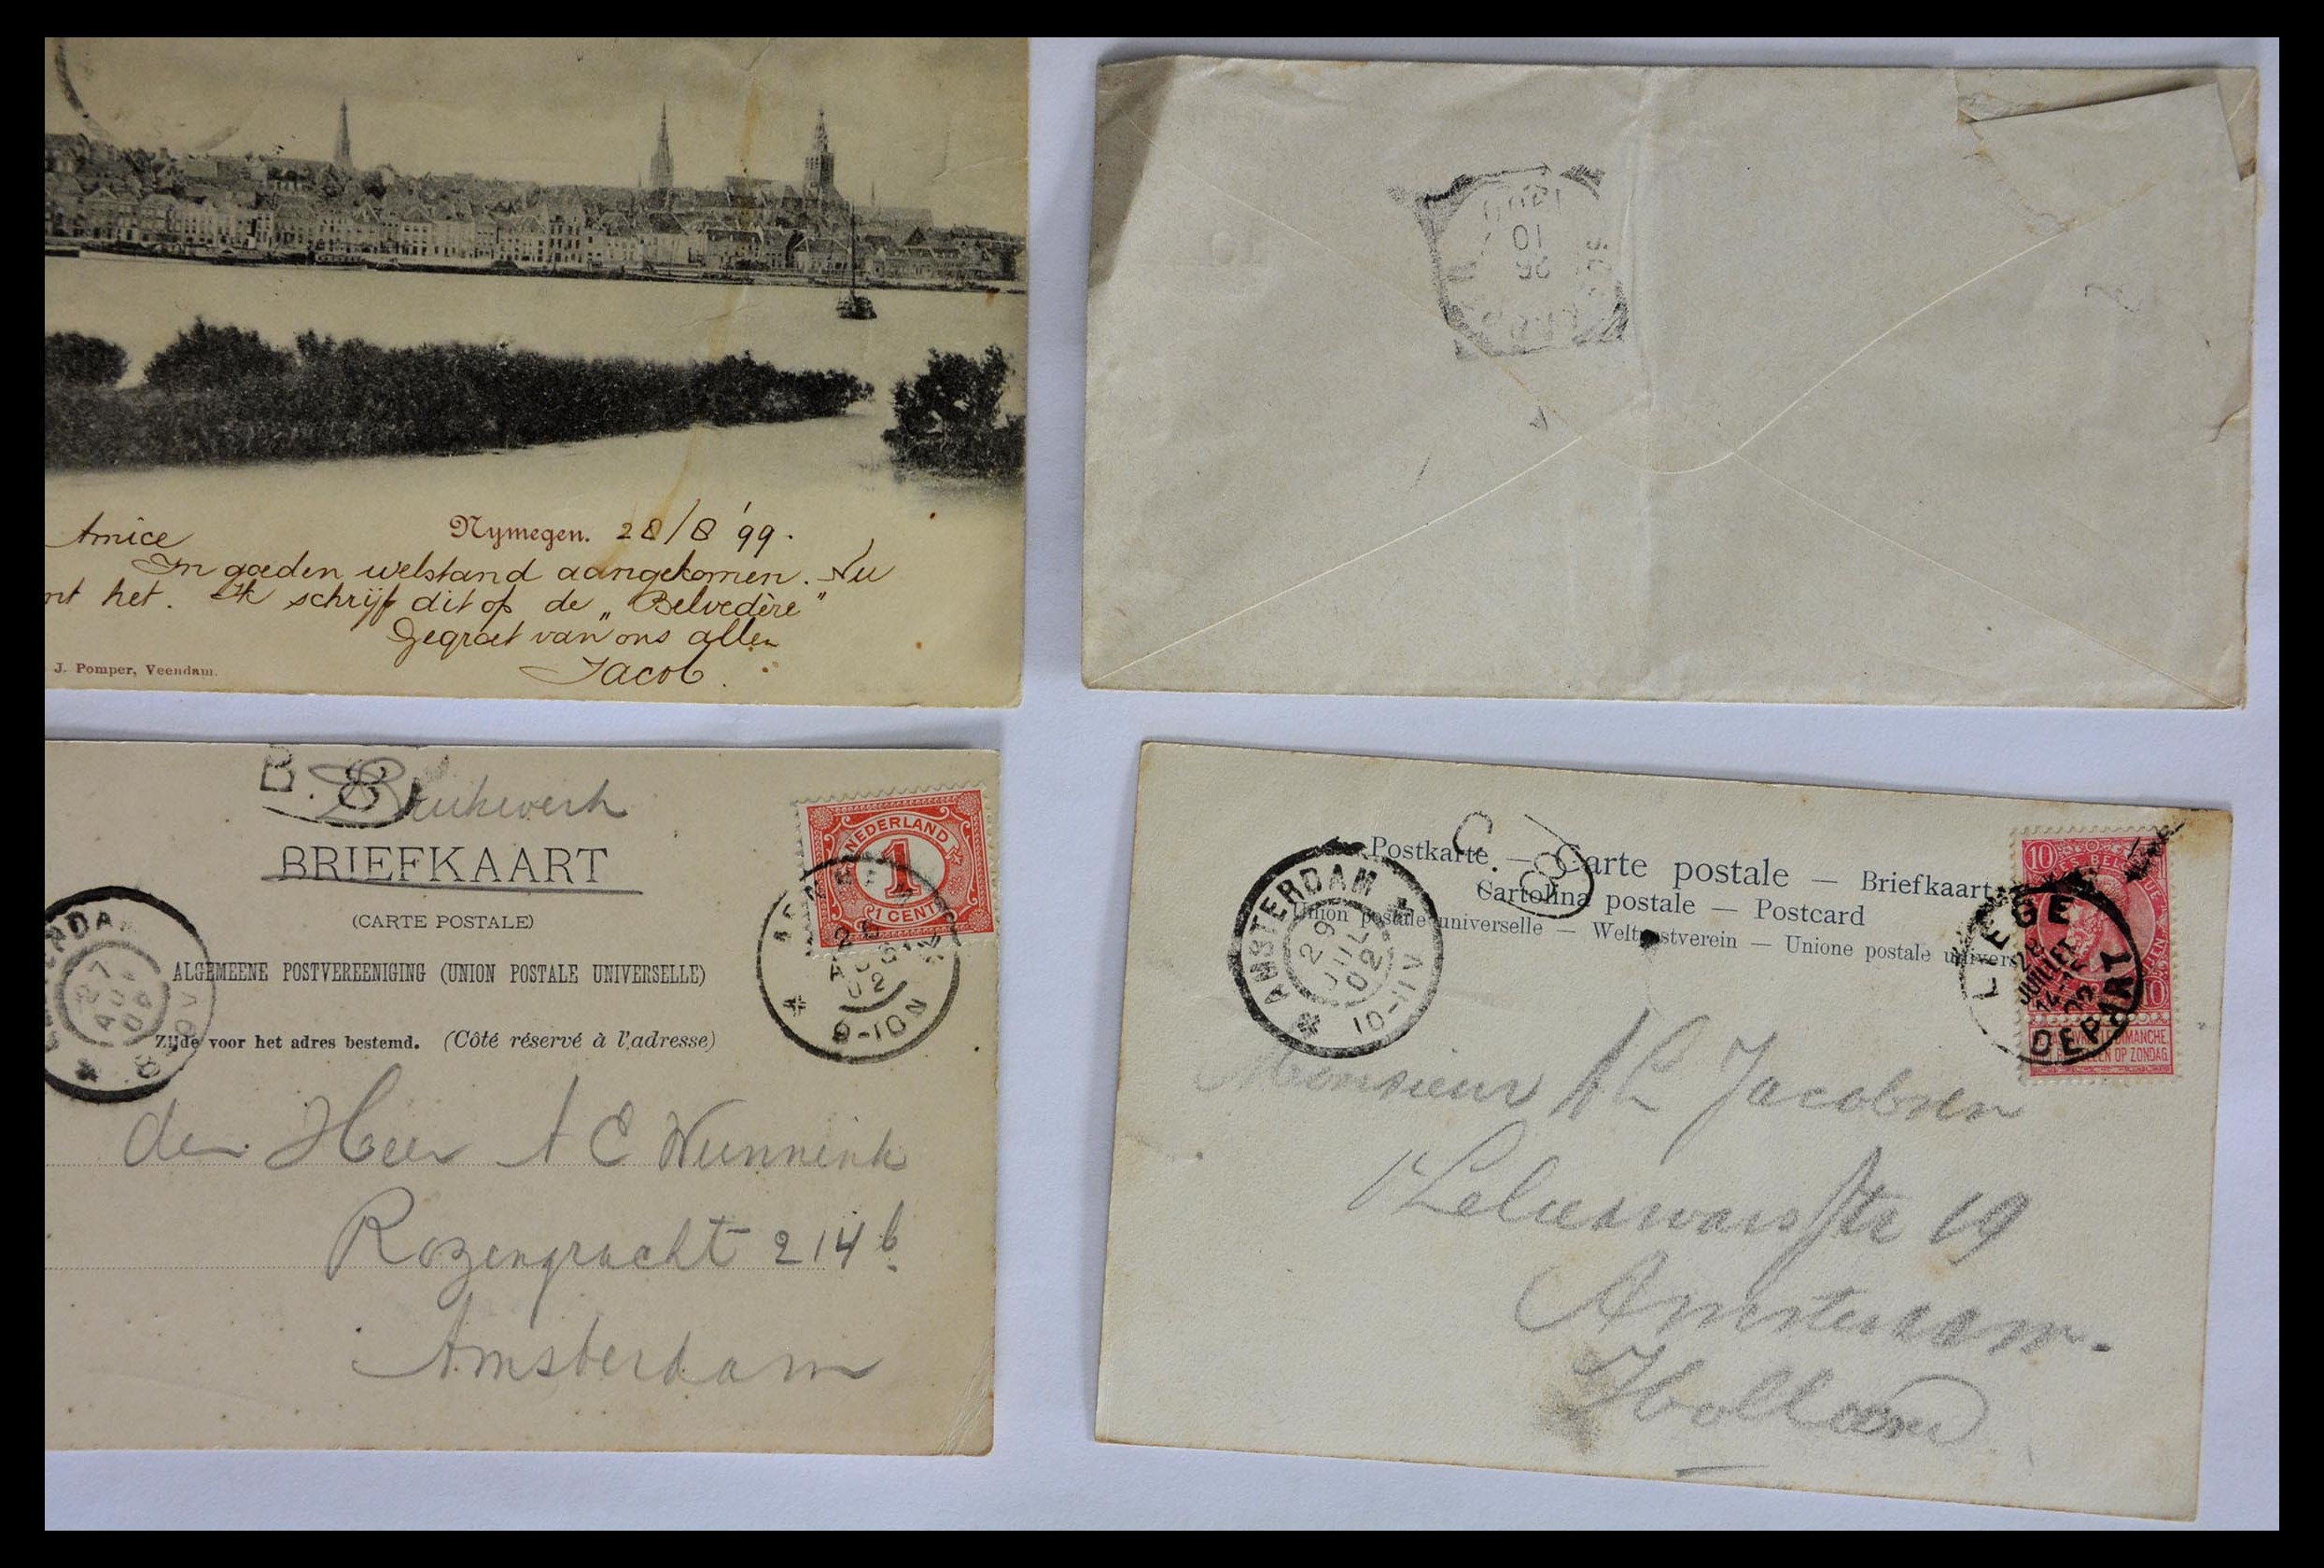 Amice
Nymegen. 28/8 '99.
In goeden welstand aangekomen. Nu
het. Ik schrijf dit op de „Belvedère"
Gegroet van ons allen
Jacob.
J. Pomper, Veendam.
10
B. 8
Drukwerk
BRIEFKAART
(CARTE POSTALE)
ALGEMEENE POSTVEREENIGING (UNION POSTALE UNIVERSELLE)
Zijde voor het adres bestemd. (Côté réservé à l'adresse)
NEDERLAND
1
1 CENT
AUG
02
9-10N
27
AUG
02
den Heer A C Wunnink
Rozengracht 214 b.
Amsterdam
C. 8
Postkarte — Carte postale — Briefkaart
Cartolina postale — Postcard
Union postale universelle — Weltpostverein — Unione postale univers
AMSTERDAM
29
JUIL
02
10-11V
10
10
LIEGE
28
JUILLET
02
DEPART
DIMANCHE
OP ZONDAG
Monsieur A C Jacobsen
19
Amsterdam.
Holland